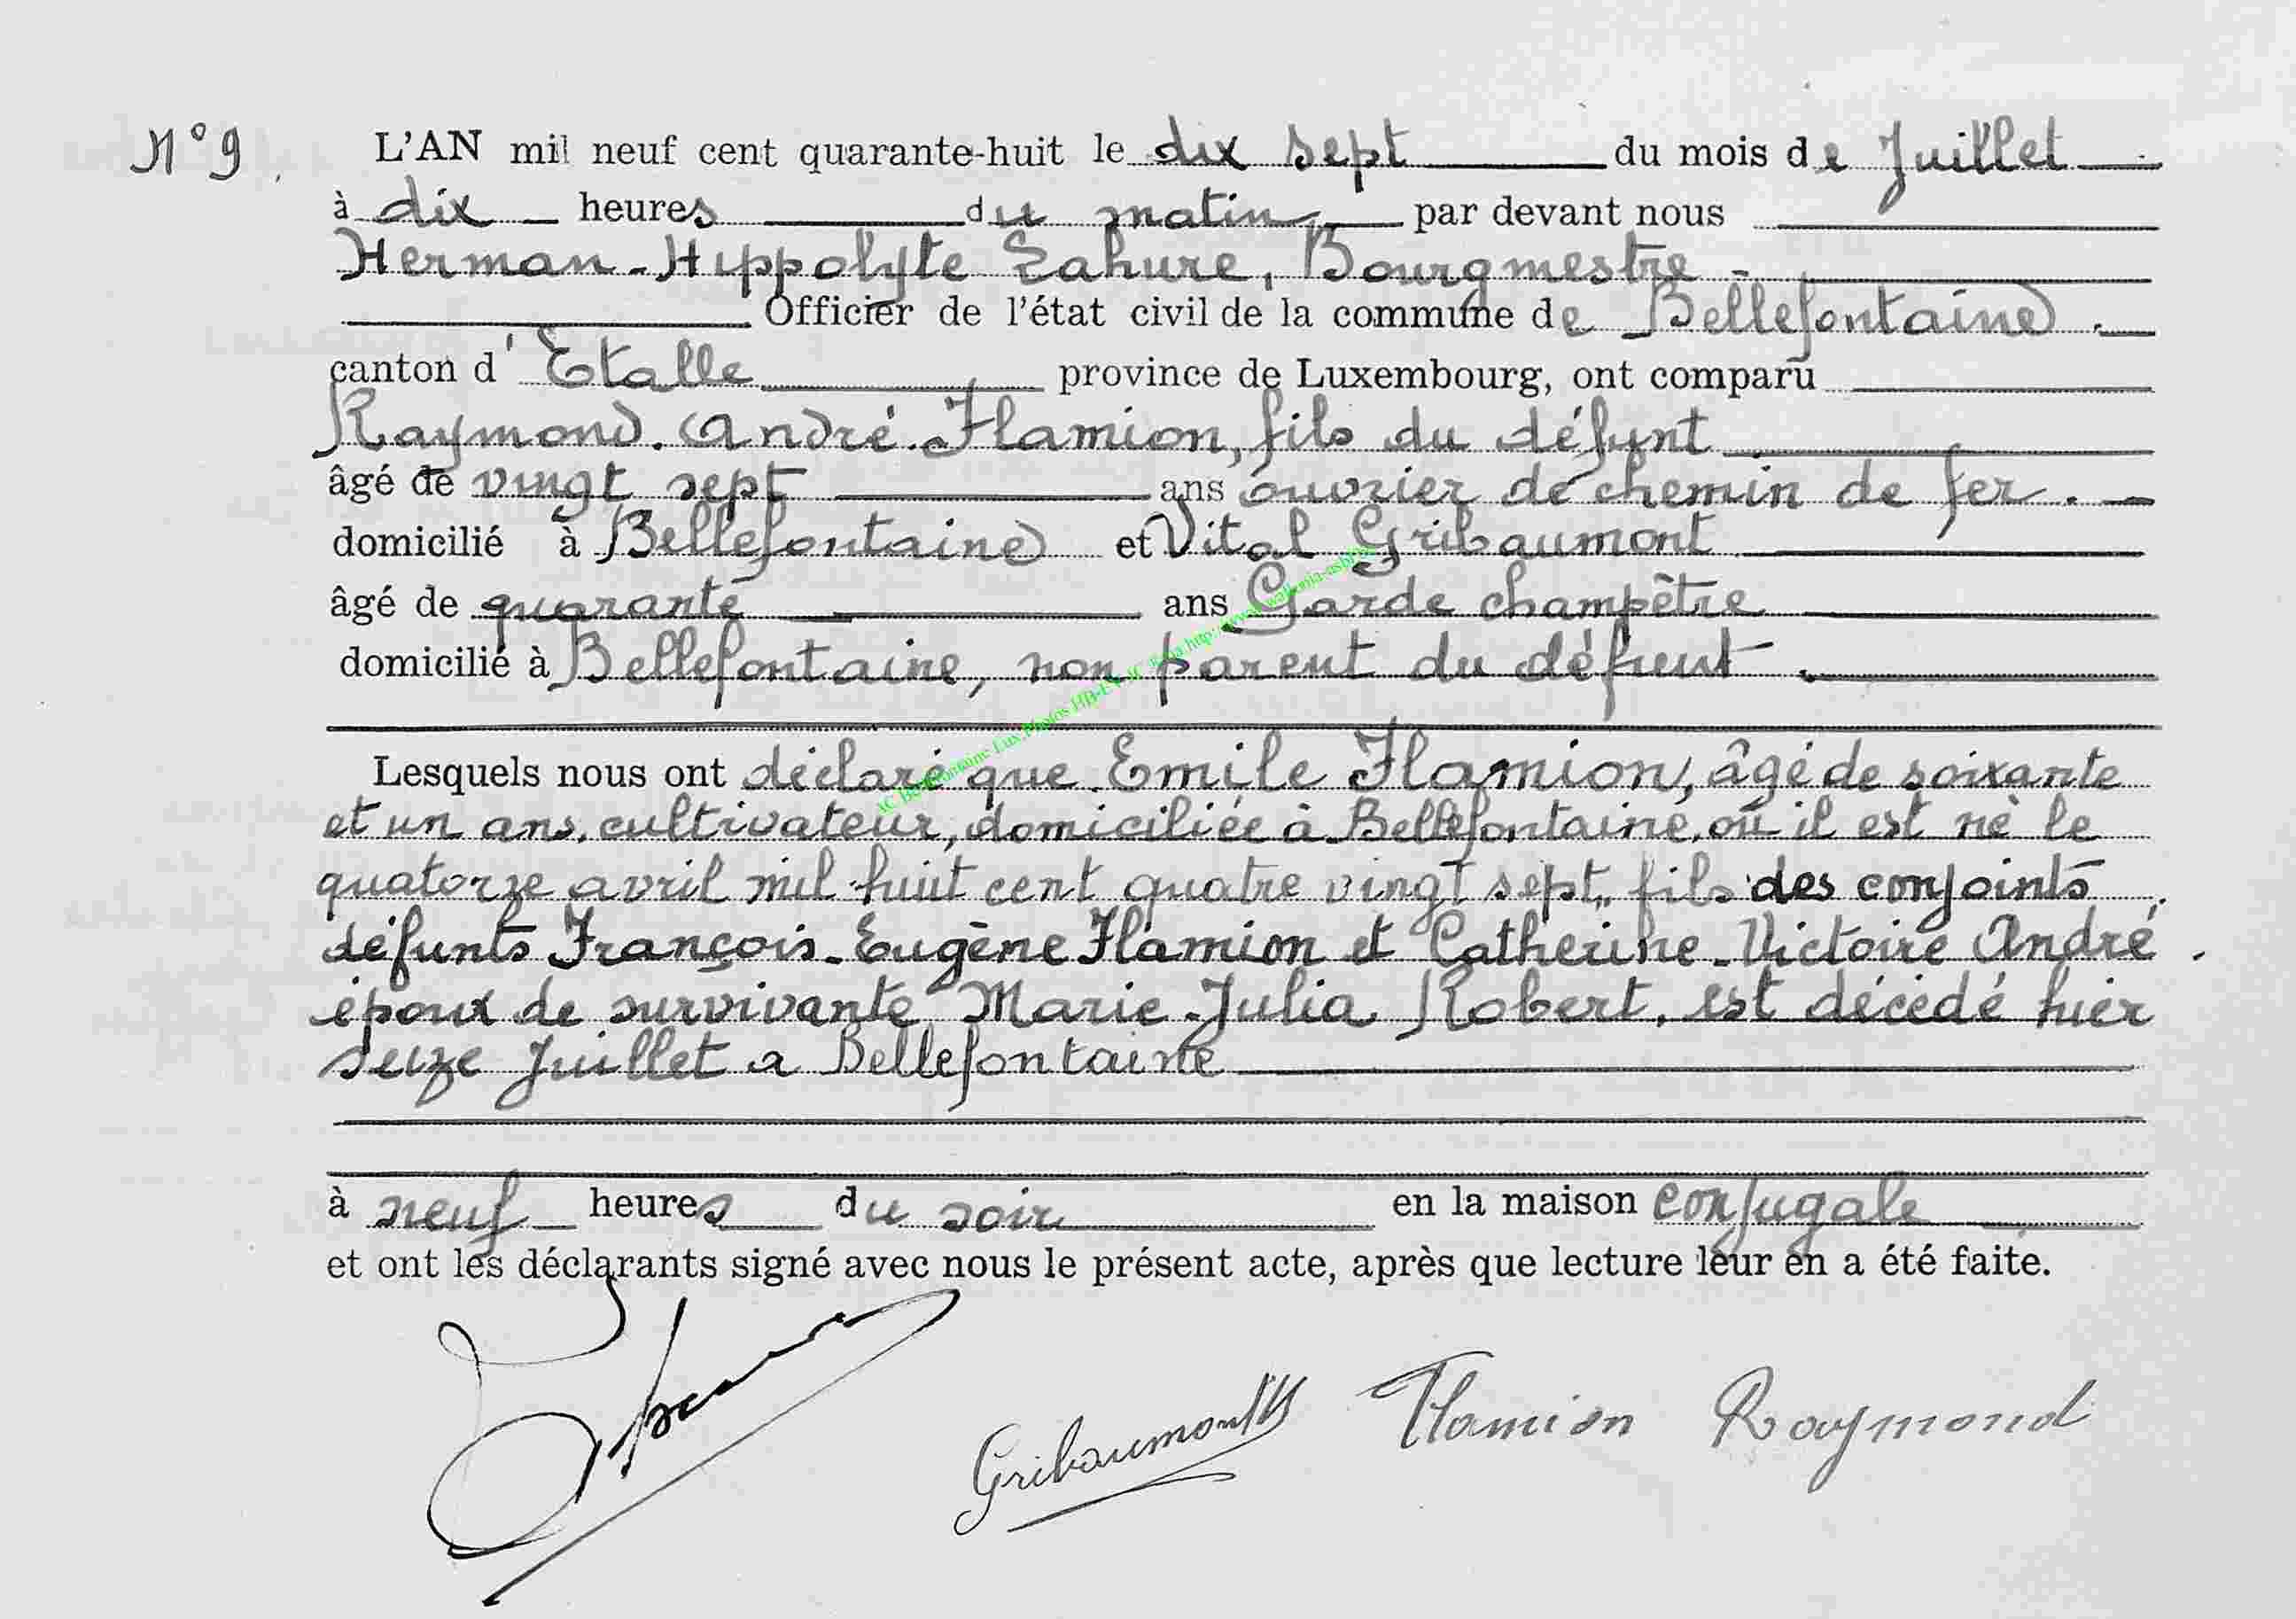 N° 9.
L'AN mil neuf cent quarante-huit le dix sept du mois de Juillet
à dix heures du matin, par devant nous
Herman-Hippolyte Lahure, Bourgmestre -
Officier de l'état civil de la commune de Bellefontaine.
canton d'Etalle province de Luxembourg, ont comparu
Raymond. André. Flamion, fils du défunt
âgé de vingt sept ans ouvrier de chemin de fer.
domicilié à Bellefontaine et Vital Gribaumont
âgé de quarante ans Garde champêtre
domicilié à Bellefontaine, non parent du défunt.
Lesquels nous ont déclaré que Emile Flamion, âgé de soixante
et un ans, cultivateur, domiciliée à Bellefontaine, où il est né le
quatorze avril mil huit cent quatre vingt sept, fils des conjoints
défunts François-Eugène Flamion et Catherine-Victoire André.
époux de survivante Marie-Julia Robert, est décédé hier
seize Juillet a Bellefontaine
à neuf heures du soir en la maison conjugale
et ont les déclarants signé avec nous le présent acte, après que lecture leur en a été faite.
Gribaumont Flamion Raymond